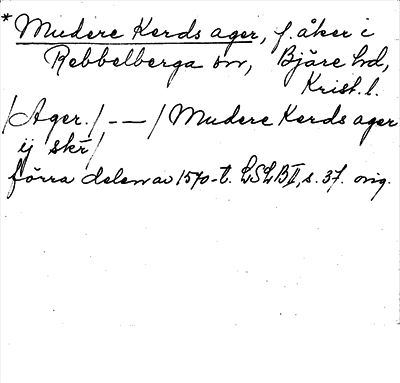 * Mudere Kerds ager, f. åker i
Rebbelberga sn, Bjäre hd,
Krist. l.
/Ager./ - - / Mudere Kerds ager
ij skr̄/
förra delen av 1570-t. LSLB II, s. 37. orig.